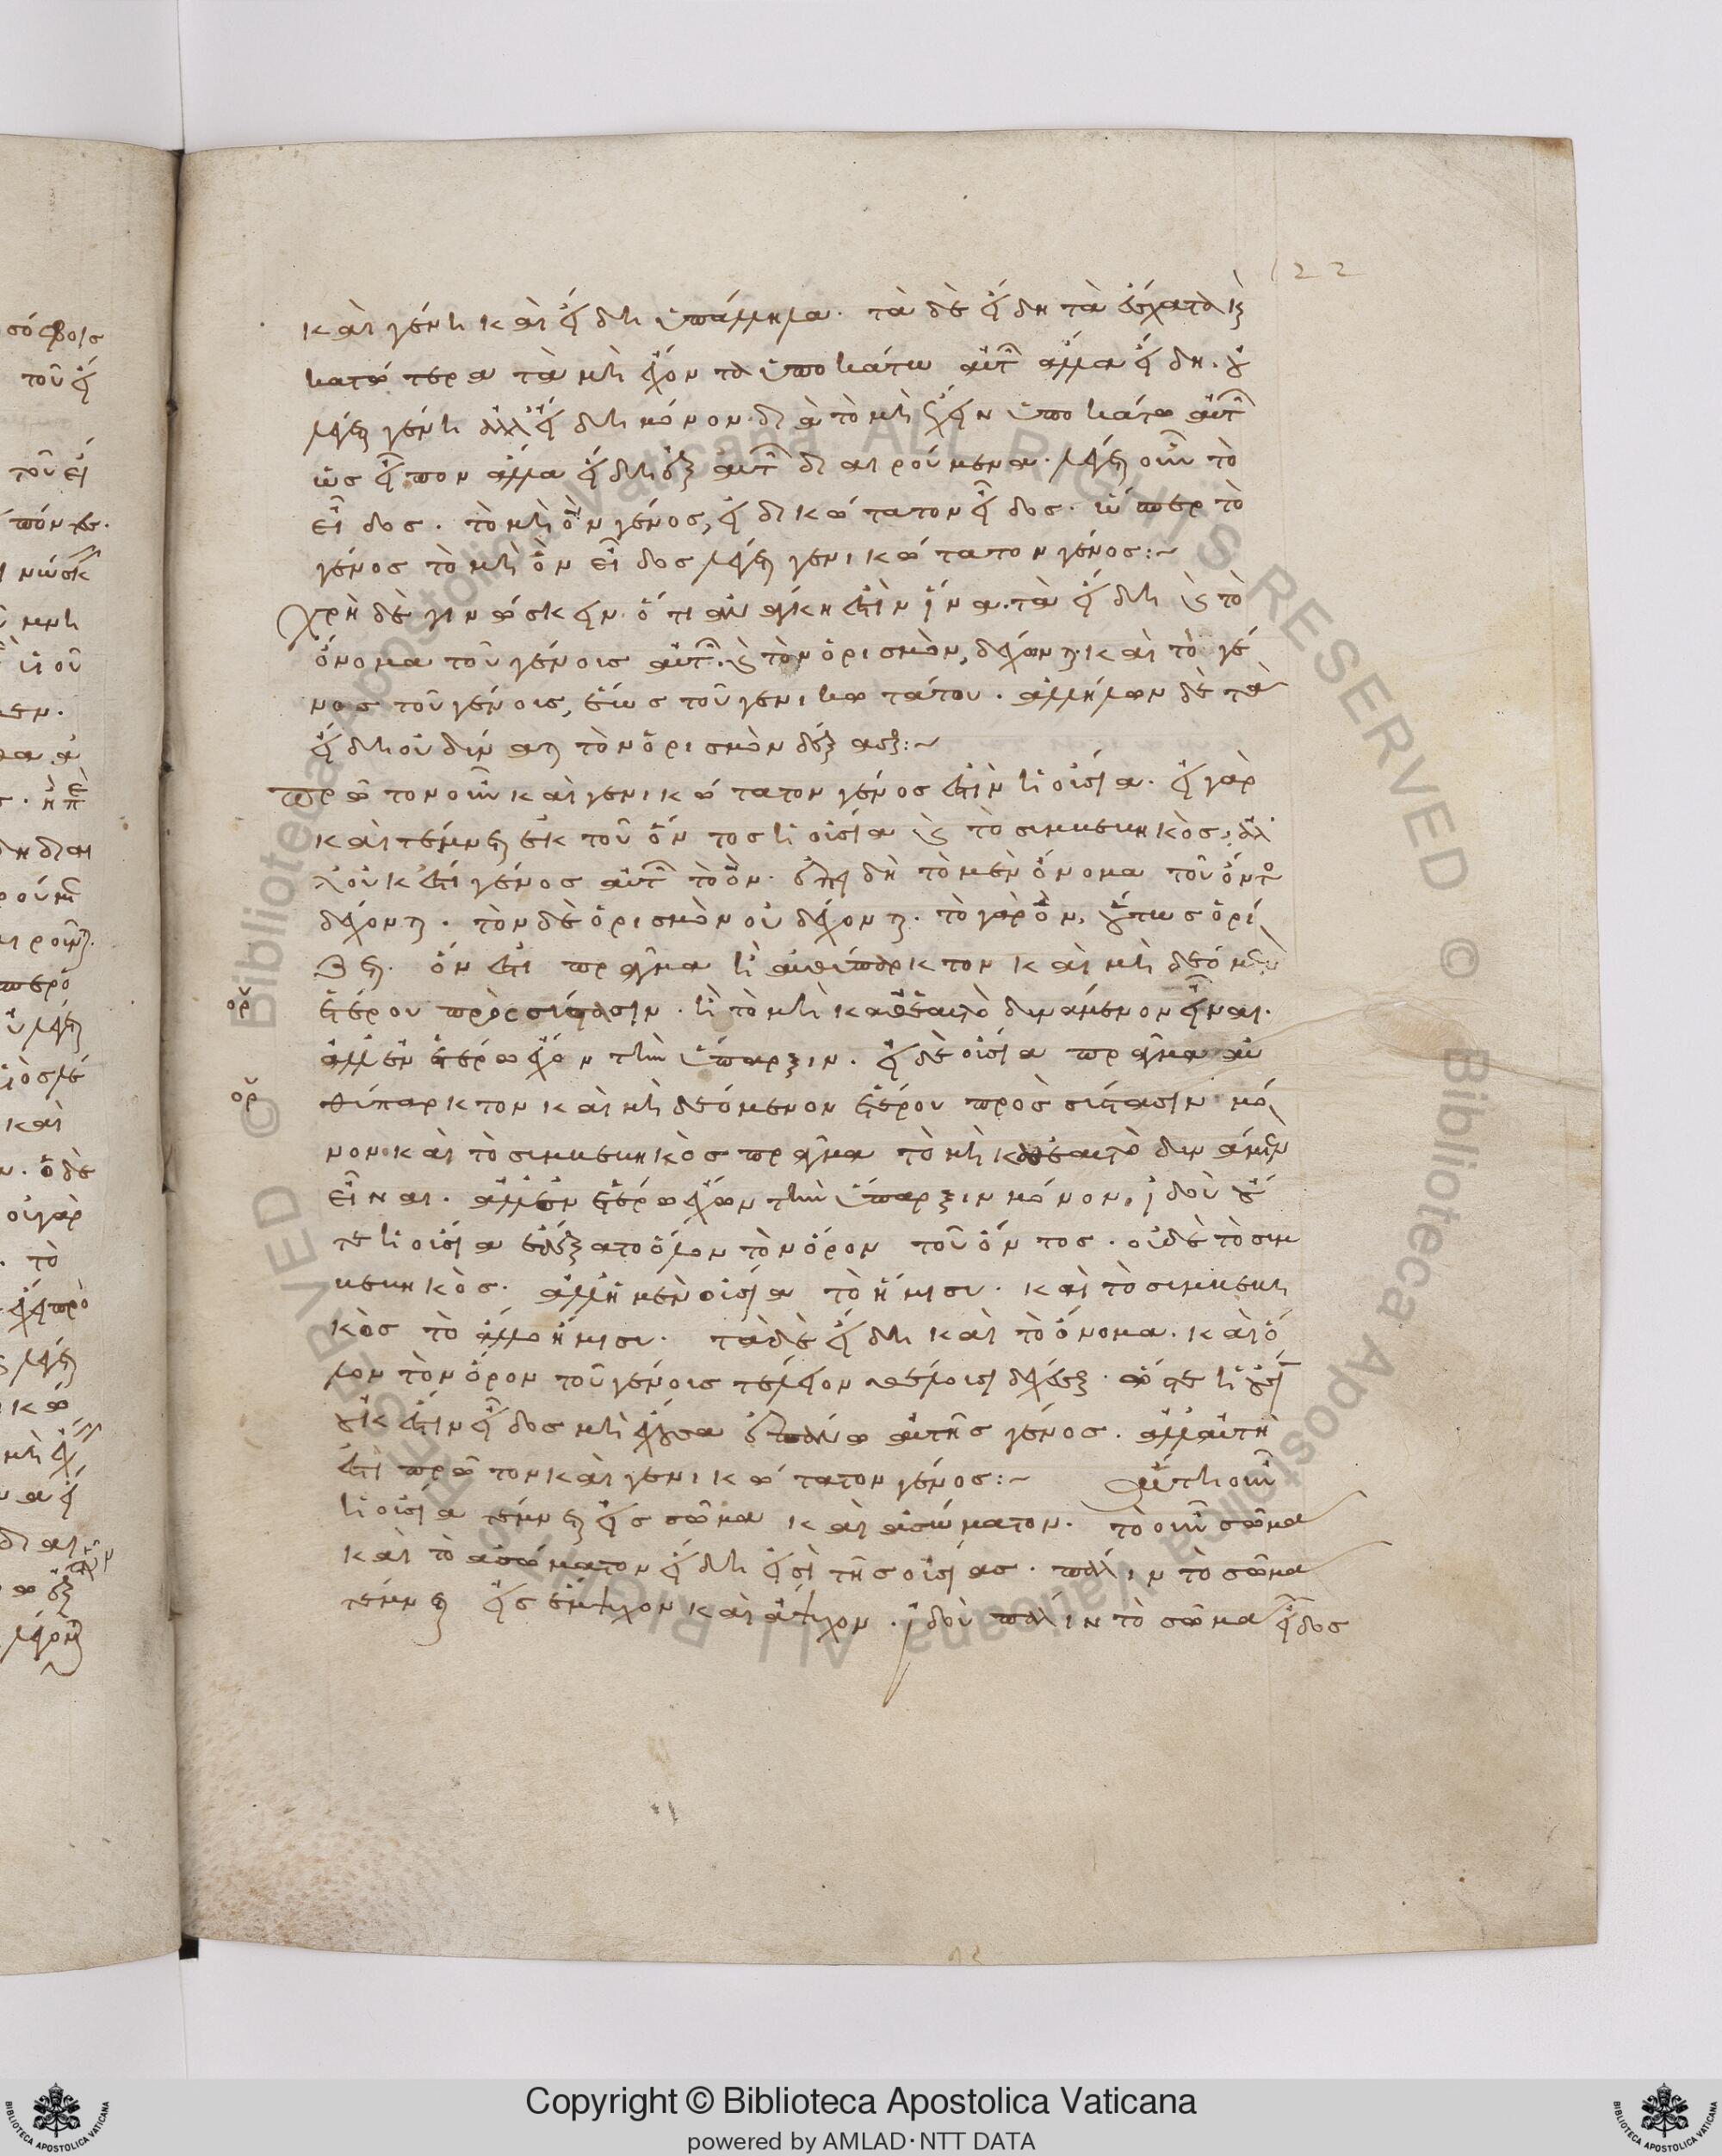 122
καὶ γένη καὶ εἴδη ὑπάλληλα. τὰ δὲ εἴδη τὰ ἔσχατα καὶ
κατώτερα τὰ μὴ ἔχοντα ὑποκάτω αὐτῶν ἄλλα εἴδη. οὐ
λέγεται γένη ἀλλ' εἴδη μόνον. διὰ τὸ μὴ ἔχειν ὑποκάτω αὐτῶν
ὡς εἶπον ἄλλα εἴδη ἐξ αὐτῶν διαιρούμενα. λέγεται οὖν τὸ
εἶδος. τὸ μὴ ὂν γένος, εἰδικώτατον εἶδος. ὥσπερ τὸ
γένος τὸ μὴ ὂν εἶδος λέγεται γενικώτατον γένος:~
χρὴ δὲ γινώσκειν ὅτι ἀνάγκη ἐστὶν ἵνα τὰ εἴδη καὶ τὸ
ὄνομα τοῦ γένους αὐτῶν. καὶ τὸν ὁρισμὸν, δέχωνται. καὶ τὸ γέ
νος τοῦ γένους, ἕως τοῦ γενικωτάτου. ἀλλήλων δὲ τὰ
εἴδη οὐ δύναται τὸν ὁρισμὸν δέξασθαι:~
πρῶτον οὖν καὶ γενικώτατον γένος ἐστὶν ἡ οὐσία. εἰ γὰρ
καὶ τέμνεται ἐκ τοῦ ὄντος ἡ οὐσία καὶ τὸ συμβεβηκὸς, ἀλ
λ' οὐκ ἔστι γένος αὐτῶν τὸ ὄν. ἐπειδὴ τὸ μὲν ὄνομα τοῦ ὄντος
δέχονται. τὸν δὲ ὁρισμὸν οὐ δέχονται. τὸ γὰρ ὂν, οὕτως ὁρί
ζεται. ὄν ἐστι πρᾶγμα ἢ αὐθύπαρκτον καὶ μὴ δεόμενον
ἑτέρου πρὸς σύστασιν. ἢ τὸ μὴ καθ' ἑαυτὸ δυνάμενον εἶναι.
ἀλλ' ἐν ἑτέρω ἔχον τὴν ὕπαρξιν. εἰ δὲ οὐσία πρᾶγμα αὐ
θύπαρκτον καὶ μὴ δεόμενον ἑτέρου πρὸς σύστασιν μό
νον καὶ τὸ συμβεβηκὸς πρᾶγμα τὸ μὴ καθ' ἑαυτὸ δυνάμενον
εἶναι. ἀλλ' ἐν ἑτέρω ἔχων τὴν ὕπαρξιν μόνον, ἰδοὺ οὔ
τε ἡ οὐσία ἐδέξατο ὅλον τὸν ὅρον τοῦ ὄντος. οὐδὲ τὸ συμ
βεβηκὸς. ἀλλ' ἡ μὲν οὐσία τὸ ἥμισυ. καὶ τὸ συμβεβη
κὸς τὸ ἄλλο ἥμισυ. τὰ δὲ εἴδη καὶ τὸ ὄνομα. καὶ ὅ
λον τὸν ὅρον τοῦ γένους τέλειον θέλουσι δέχεσθαι. ὥστε ἡ οὐσία
οὐκ ἔστιν εἶδος μὴ ἔχουσα ἐπάνω αὐτῆς γένος. ἀλλ' αὐτή
ἐστι πρῶτον καὶ γενικώτατον γένος:~ αὕτη οὖν
ἡ οὐσία τέμνεται εἰς σῶμα καὶ ἀσώματον. τὸ οὖν σῶμα
καὶ τὸ ἀσώματον εἴδη εἰσὶ τῆς οὐσίας. πάλιν τὸ σῶμα
τέμνεται εἰς ἔμψυχον καὶ ἄψυχον. ἰδοὺ πάλιν τὸ σῶμα εἶδος
ὅρος
ὅρος
Copyright © Biblioteca Apostolica Vaticana
powered by AMLAD·NTT DATA